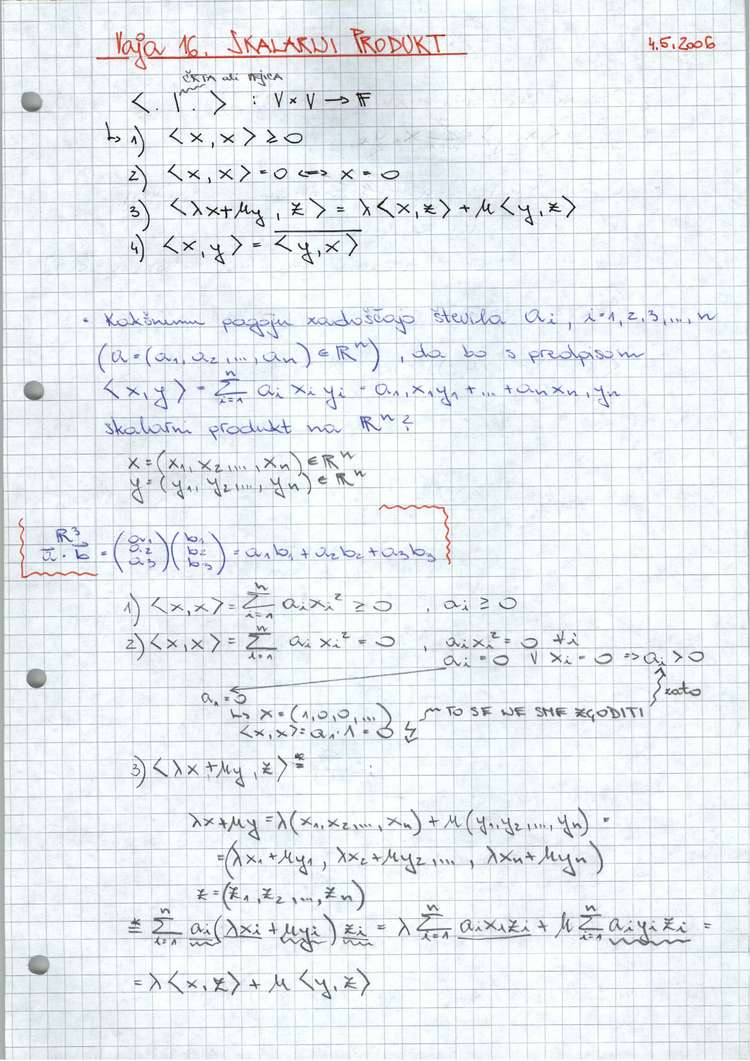 Vaja 16. SKALARNI PRODUKT 4.5.2006
ČRTA ali VEJICA
<.|.> : V×V → F
↳ 1) <x,x> ≥ 0
2) <x,x> = 0 <=> x = 0
3) <λx+μy, z> = λ<x,z> + μ<y,z>
4) <x,y> = \overline{<y,x>}
• Kakšnemu pogoju zadoščajo števila ai, i=1,2,3,...,n
(a=(a1,a2,...,an) ∈ ℝ^n), da bo s predpisom
<x,y> = Σ_{i=1}^{n} ai xi yi = a1,x1y1 + ... + anxn,yn
skalarni produkt na ℝ^n?
x=(x1,x2,...,xn) ∈ ℝ^n
y=(y1,y2,...,yn) ∈ ℝ^n
ℝ^3
a·b = (a1 a2 a3)(b1 b2 b3) = a1b1 + a2b2 + a3b3
1) <x,x> = Σ_{i=1}^{n} aixi² ≥ 0 , ai ≥ 0
2) <x,x> = Σ_{i=1}^{n} ai xi² = 0 , aixi² = 0 ∀i
ai = 0 ∨ xi = 0 ⇒ ai > 0
a1=0 zato
↳ x=(1,0,0,...) TO SE NE SME ZGODITI
<x,x> = a1·1 = 0 ↯
3) <λx+μy, z> *=
λx+μy = λ(x1,x2,...,xn) + μ(y1,y2,...,yn) =
=(λx1+μy1, λx2+μy2,..., λxn+μyn)
z=(z1,z2,...,zn)
*= Σ_{i=1}^{n} ai(λxi+μyi)zi = λ Σ_{i=1}^{n} aixizi + μ Σ_{i=1}^{n} aiyizi =
= λ<x,z> + μ<y,z>